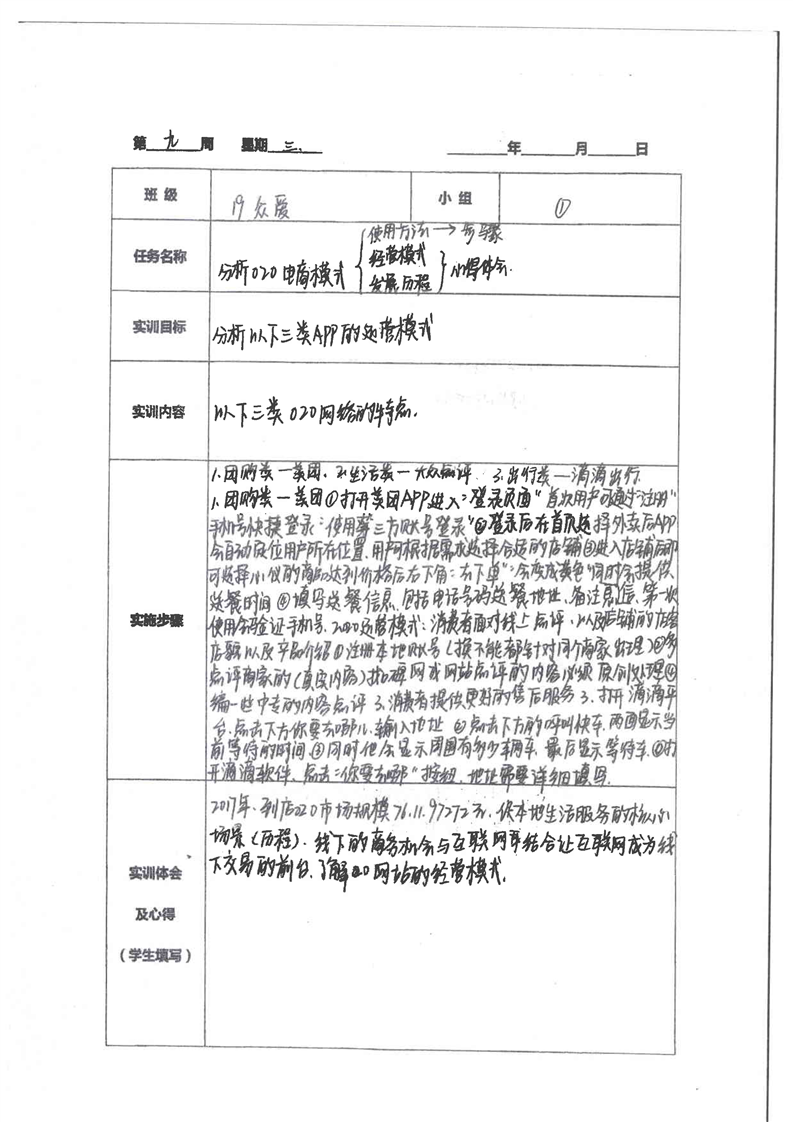 第 九 周 星期 三. 年 月 日
班 级 19 众爱 小 组 ①
任务名称 分析O2O电商模式 { 使用方法 → 步骤
经营模式
发展历程 } 心得体会.
实训目标 分析以下三类APP的运营模式
实训内容 以下三类O2O网络的特点.
实施步骤
1.团购类一美团. 2.生活类一大众点评 3.出行类一滴滴出行.
1.团购类一美团①打开美团APP进入"登录页面"首次用户可通过"注册"
手机号快捷登录"使用第三方账号登录"②登录后在首页选择外卖后APP
会自动定位用户所在位置.用户可根据需求选择合适的店铺③进入店铺后即
可选择心仪的商品达到价格后右下角"右下单"会变成黄色"同时会提供
送餐时间④填写送餐信息.包括电话号码送餐地址.备注息信.第一次
使用会验证手机号. 运营模式:消费者面对线上点评,以及店铺的店
以及产品介绍①注册本地账号(操不能都针对同个商家出理)②多
点评商家的(真实内容) 网或网站点评的内容必须原创处理③
编一些中专的内容点评 3.消费者提供更好的售后服务 3.打开滴滴平
台.点击下方你要去哪儿.输入地址 ②点击下方的呼叫快车.页面显示当
前等待的时间.③同时他会显示周围有多少车两车.最后显示等待车.④打
开滴滴软件.点击"你要去哪"按钮.地址需要详细填写.
实训体会
及心得
(学生填写)
2017年.到店O2O市场规模76.11.97272元.供本地生活服务的核心
场景(历程).线下的商务机会与互联网 结合让互联网成为线
下交易的前台.了解O2O网站的经营模式.